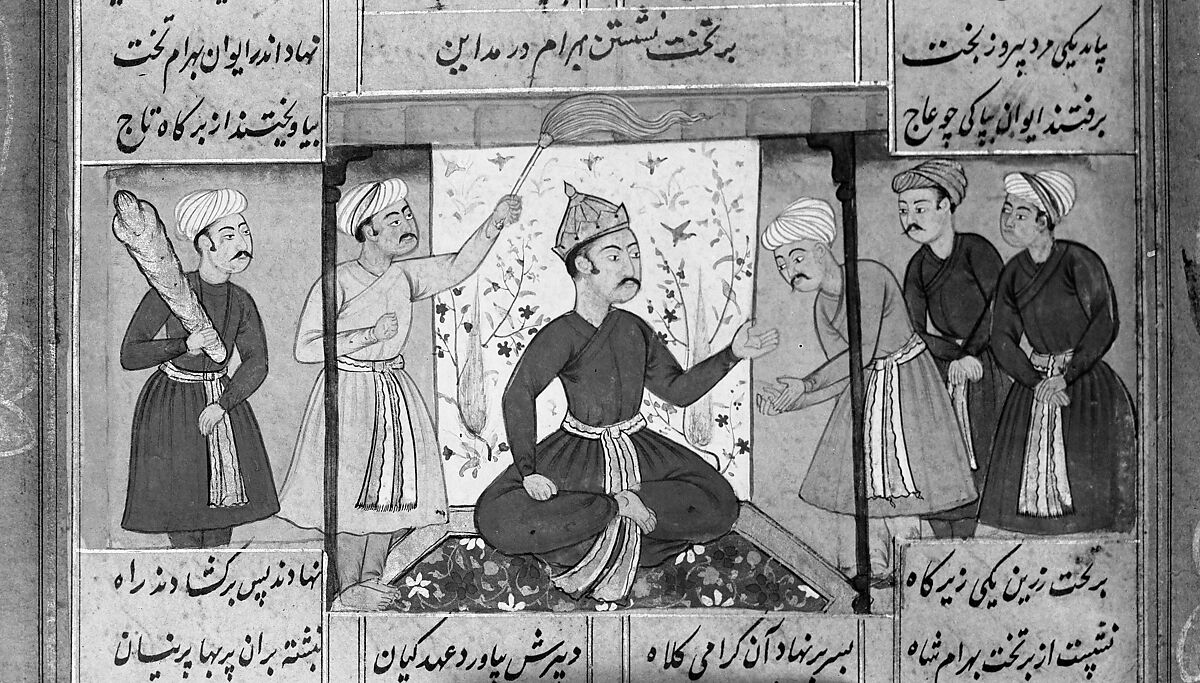 بیامد یکی مرد پیروز بخت
نهاد اندر ایوان بهرام تخت
بر تخت نشستن بهرام در مداین
برفتند ایوان بپاکی چو عاج
بیاویختند از بر گاه تاج
بر تخت زرین یکی زیر گاه
نهادند پس بر گشادند راه
نشست از بر تخت بهرام شاه
بسر بر نهاد آن گرامی کلاه
دبیرش بیاورد عهد کیان
نبشته بران پر بها پرنیان